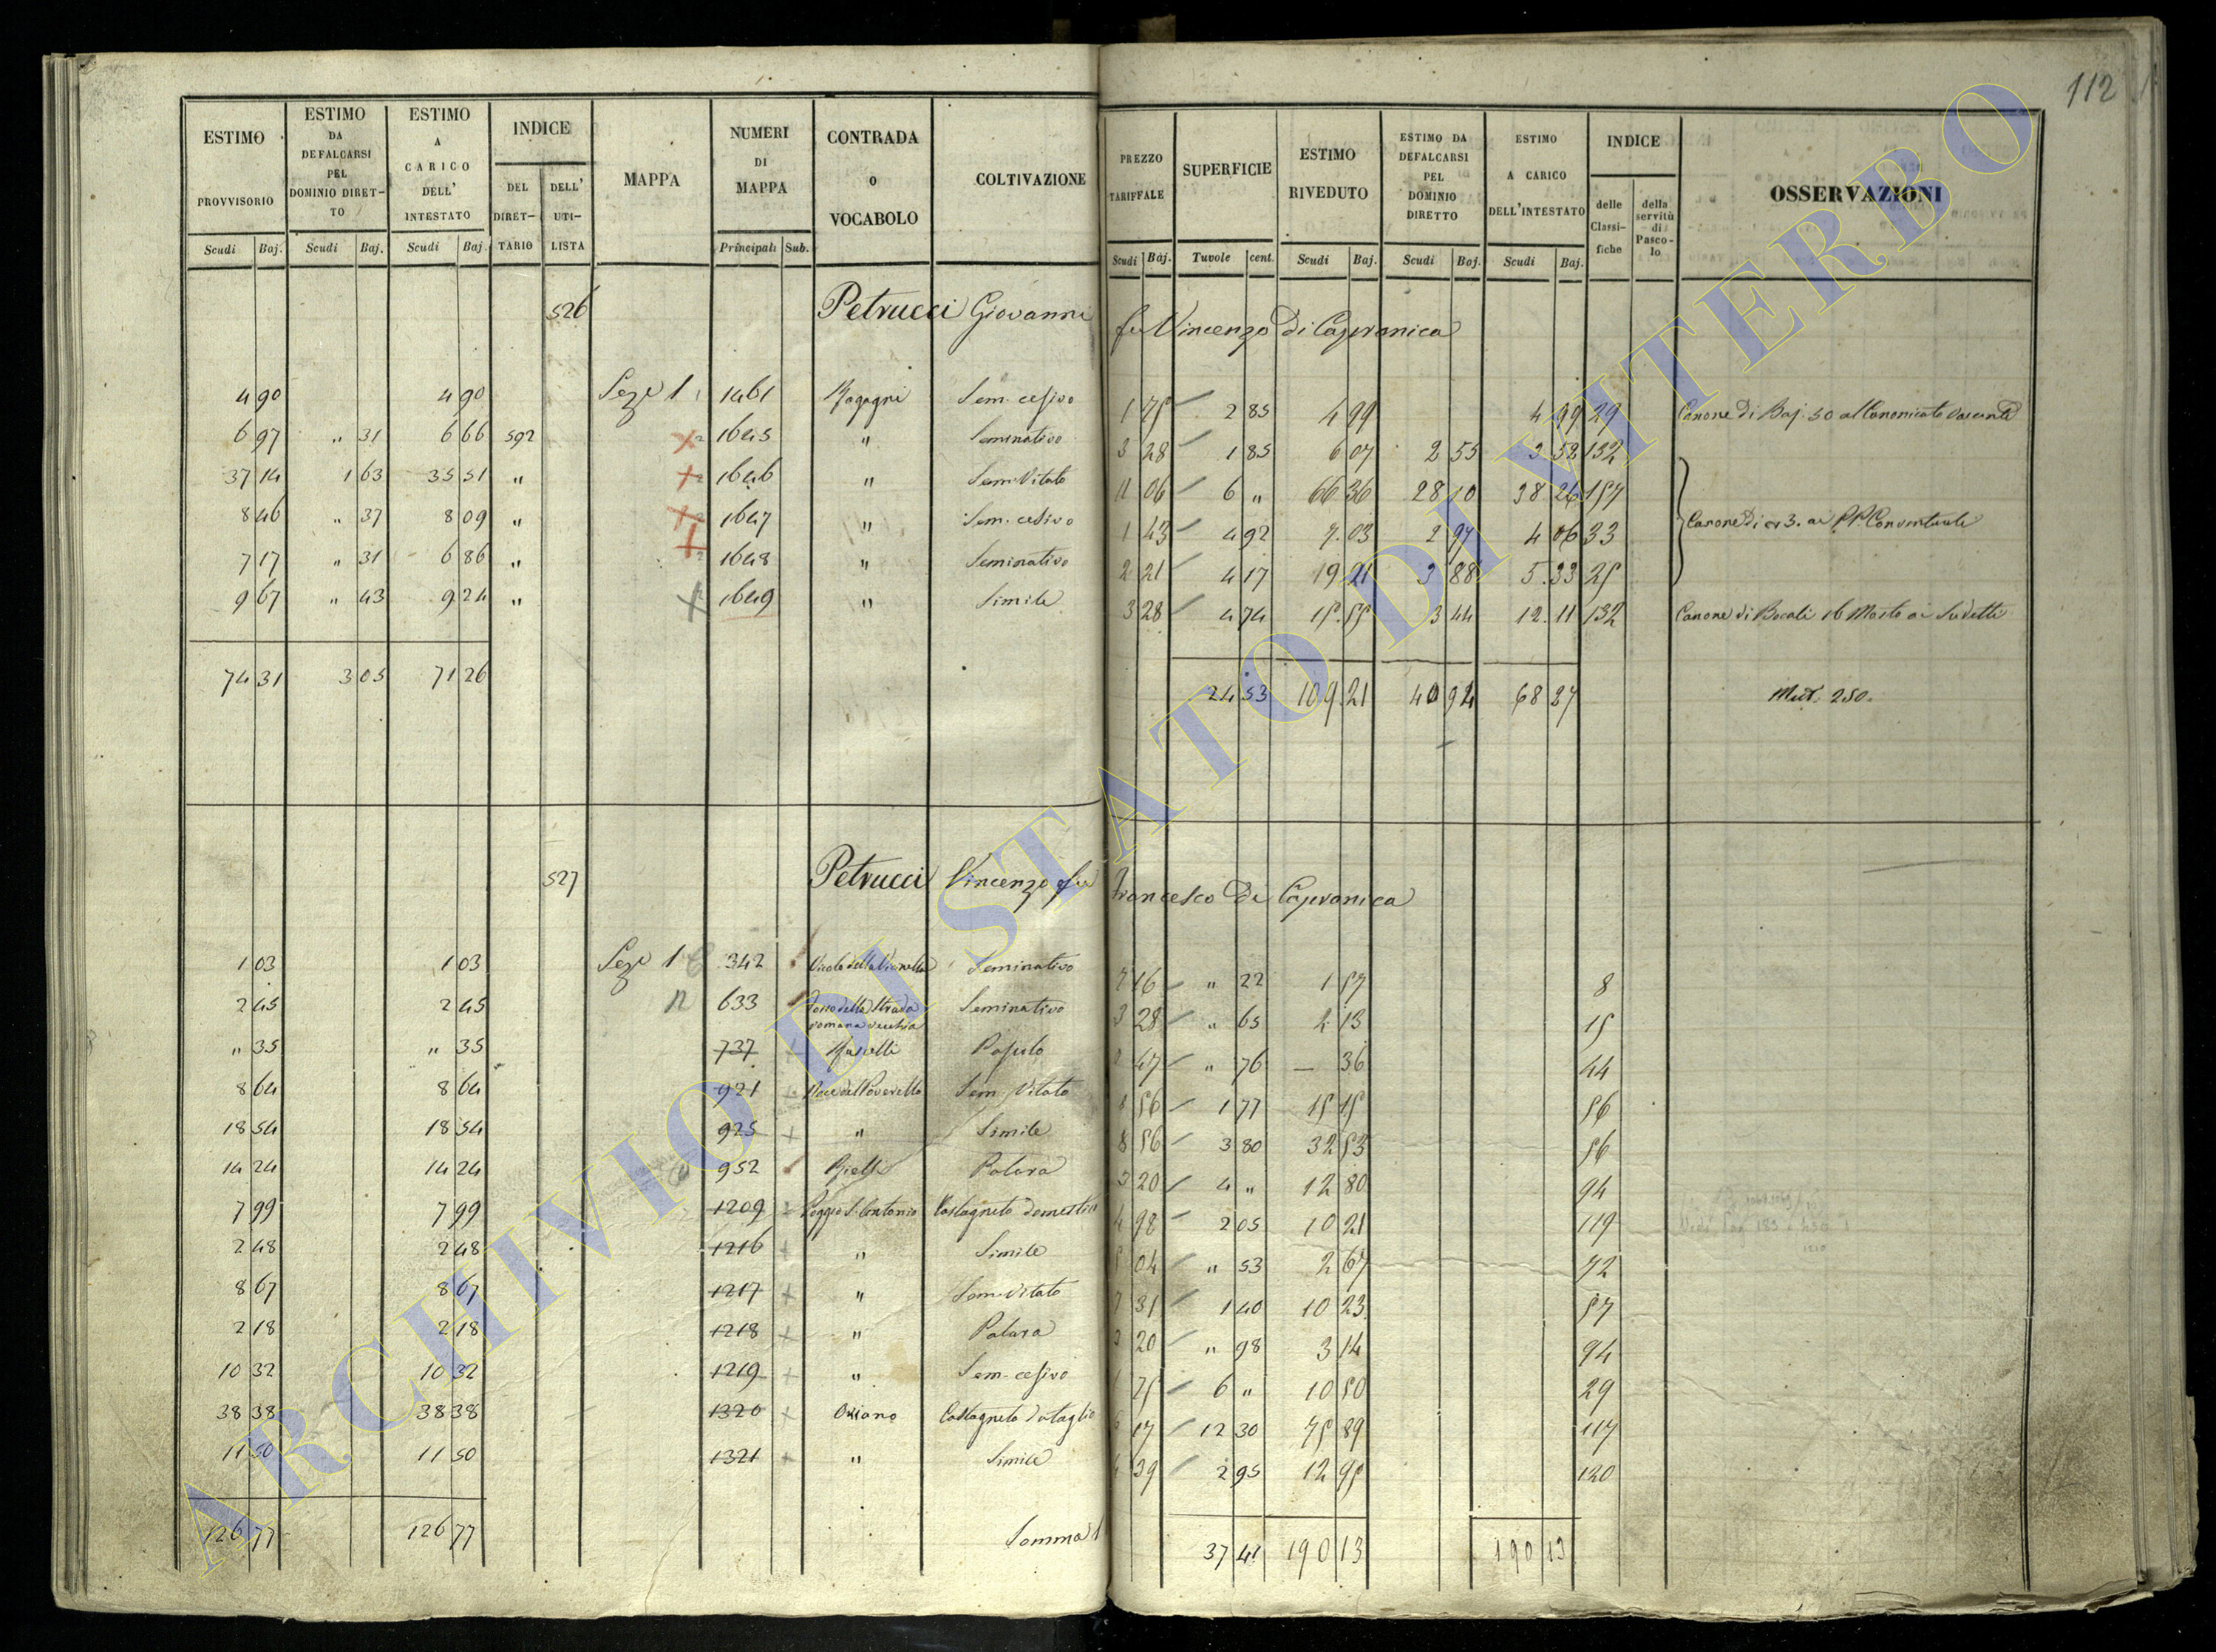 112
ESTIMO PROVVISORIO Scudi Baj. | ESTIMO DA DEFALCARSI PEL DOMINIO DIRETTO Scudi Baj. | ESTIMO A CARICO DELL' INTESTATO Scudi Baj. | INDICE DEL DIRETTARIO | DELL' UTILISTA | MAPPA | NUMERI DI MAPPA Principali Sub. | CONTRADA O VOCABOLO | COLTIVAZIONE | PREZZO TARIFFALE Scudi Baj. | SUPERFICIE Tavole cent. | ESTIMO RIVEDUTO Scudi Baj. | ESTIMO DA DEFALCARSI PEL DOMINIO DIRETTO Scudi Baj. | ESTIMO A CARICO DELL'INTESTATO Scudi Baj. | INDICE delle Classifiche | della servitù di Pascolo | OSSERVAZIONI
526 Petrucci Giovanni fu Vincenzo di Capranica
4 90 | 4 90 | Sez. 1 | 1461 | Sem. cesivo | 1 75 | 2 85 | 4 99 | 4 99 | 29 | Canone di Baj. 50 al Canonicato vacante
6 97 | " 31 | 6 66 | 592 | 1645 | " | Seminativo | 3 28 | 1 85 | 6 07 | 2 55 | 3 52 | 132
37 14 | 1 63 | 35 51 | " | 1646 | " | Sem. Vitato | 11 06 | 6 " | 66 36 | 28 10 | 38 26 | 157
8 46 | " 37 | 8 09 | " | 1647 | " | Sem. cesivo | 1 43 | 4 92 | 7 03 | 2 97 | 4 06 | 33 | Canone di 3. ai PP Conventuali
7 17 | " 31 | 6 86 | " | 1648 | " | Seminativo | 2 21 | 4 17 | 19 21 | 3 88 | 5 33 | 25
9 67 | " 43 | 9 24 | " | 1649 | " | Simile | 3 28 | 4 74 | 15 55 | 3 44 | 12 11 | 132 | Canone di Bocali 16 Mosto ai Sudetti
74 31 | 3 05 | 71 26 | 24 53 | 109 21 | 40 94 | 68 27 | Mut. 250.
527 Petrucci Vincenzo fu Francesco di Capranica
1 03 | 1 03 | Sez. 1 | 342 | Vicolo della Vignella | Seminativo | 7 16 | " 22 | 1 57 | 8
2 45 | 2 45 | 633 | Fosso della Strada romana vecchia | Seminativo | 3 28 | " 65 | 2 13 | 15
" 35 | " 35 | 737 | Pascolo | 47 | " 76 | — 36 | 44
8 64 | 8 64 | 921 | Noce del Poverello | Sem. Vitato | 8 56 | 1 77 | 15 15 | 56
18 54 | 18 54 | 925 | " | Simile | 8 56 | 3 80 | 32 53 | 56
14 24 | 14 24 | 952 | Palara | 3 20 | 4 " | 12 80 | 94
7 99 | 7 99 | 1209 | Poggio S. Antonio | Castagneto domestico | 4 98 | 2 05 | 10 21 | 119
2 48 | 2 48 | 1216 | " | Simile | 5 04 | " 53 | 2 67 | 72
8 67 | 8 67 | 1217 | " | Sem. Vitato | 7 31 | 1 40 | 10 23 | 57
2 18 | 2 18 | 1218 | " | Palara | 3 20 | " 98 | 3 14 | 94
10 32 | 10 32 | 1219 | " | Sem. cesivo | 1 75 | 6 " | 10 50 | 29
38 38 | 38 38 | 1320 | Oriano | Castagneto da taglio | 6 17 | 12 30 | 75 89 | 117
11 50 | 11 50 | 1321 | " | Simile | 4 39 | 2 95 | 12 95 | 120
126 77 | 126 77 | Somma | 37 41 | 190 13 | 190 13
ARCHIVIO DI STATO DI VITERBO